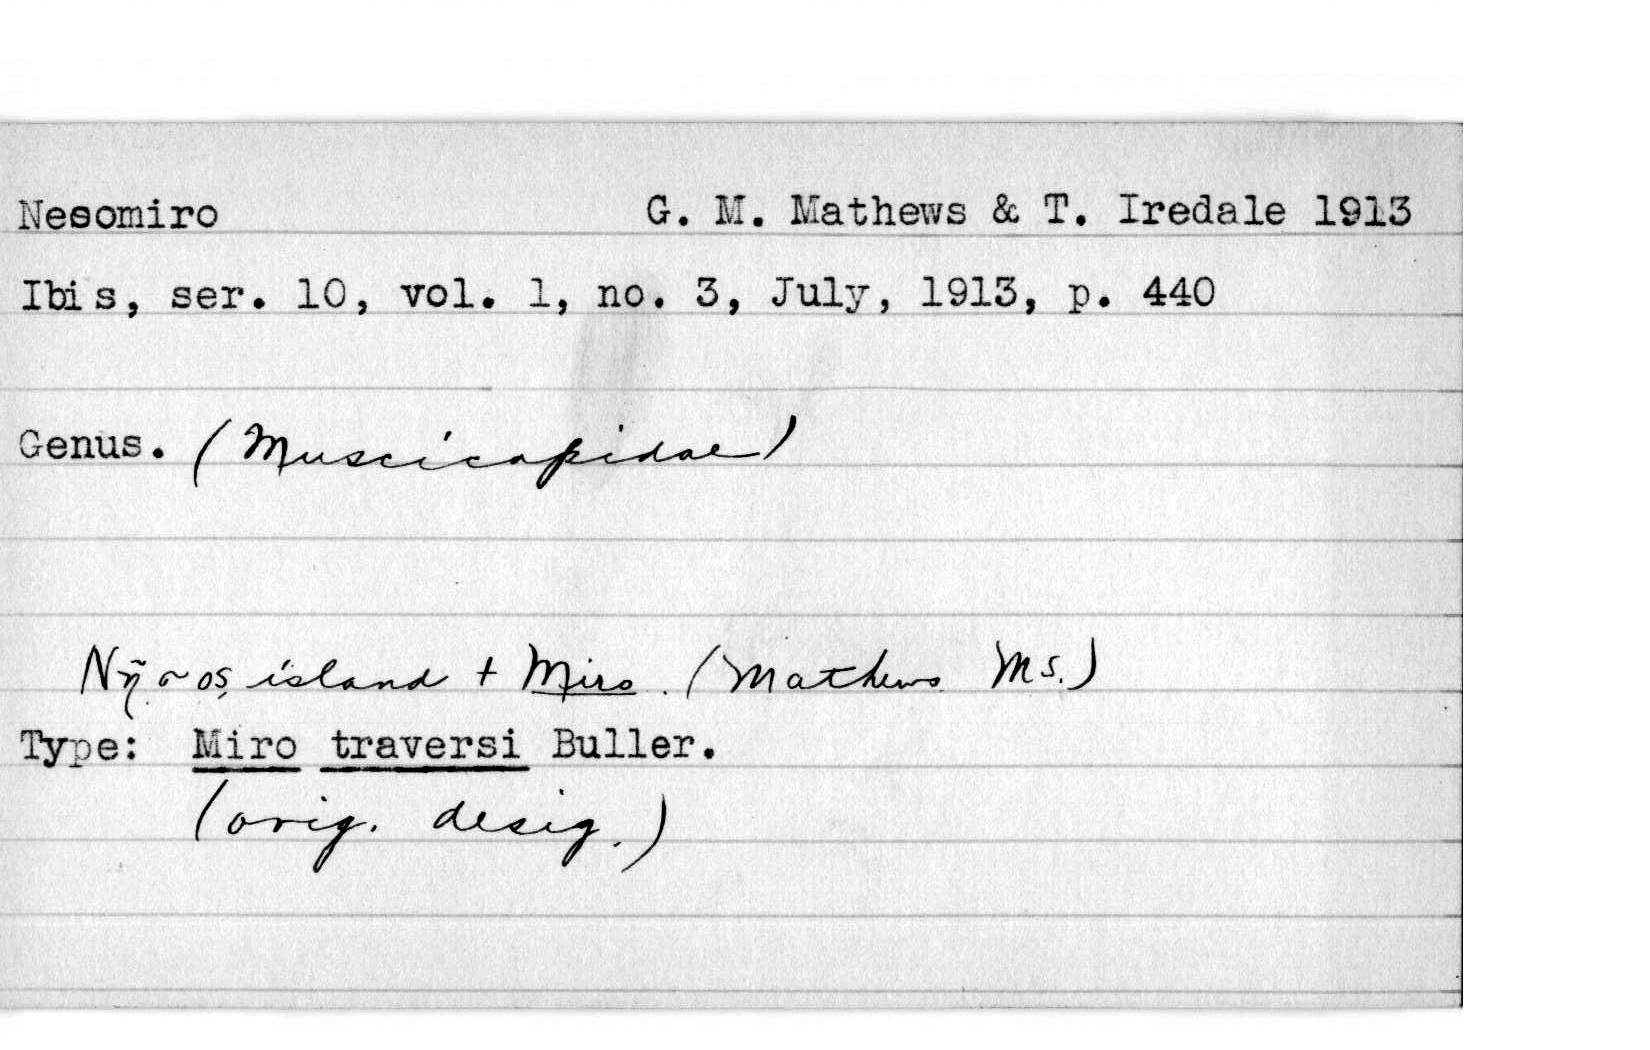 Nesomiro G. M. Mathews & T. Iredale 1913
Ibis, ser. 10, vol. 1, no. 3, July, 1913, p. 440
Genus. (Muscicapidae)
island + Miro. (Mathews Ms.)
Type: Miro traversi Buller.
(orig. desig.)